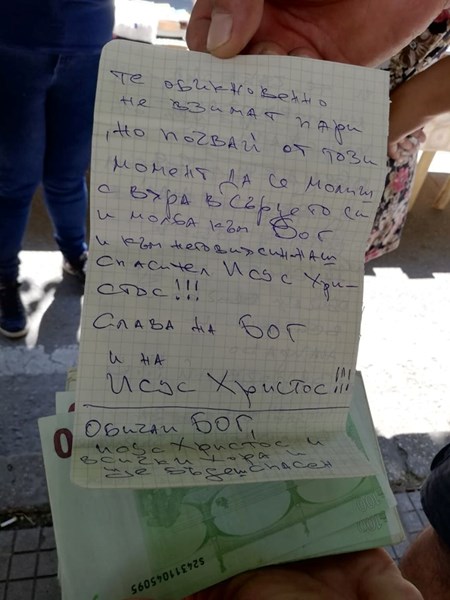 те обикновенно
не взимат пари
, но почвай от този
момент да се молиш
с вяра в сърцето си
и молба към Бог
и към неговия син наш
спасител Исус Хри-
стос!!!
Слава на БОГ
и на
Исус Христос!!!
Обичай БОГ,
Исус Христос и
всички хора и
ще бъдеш спасен
S24311045095